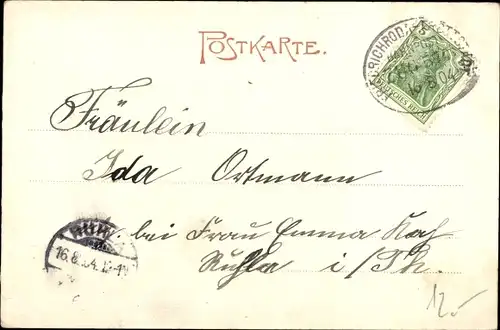 POSTKARTE.
DEUTSCHES REICH
Fräulein
Ida Ortmann
bei Frau Emma
Ruhla i/Th.
16.8.04
12.-